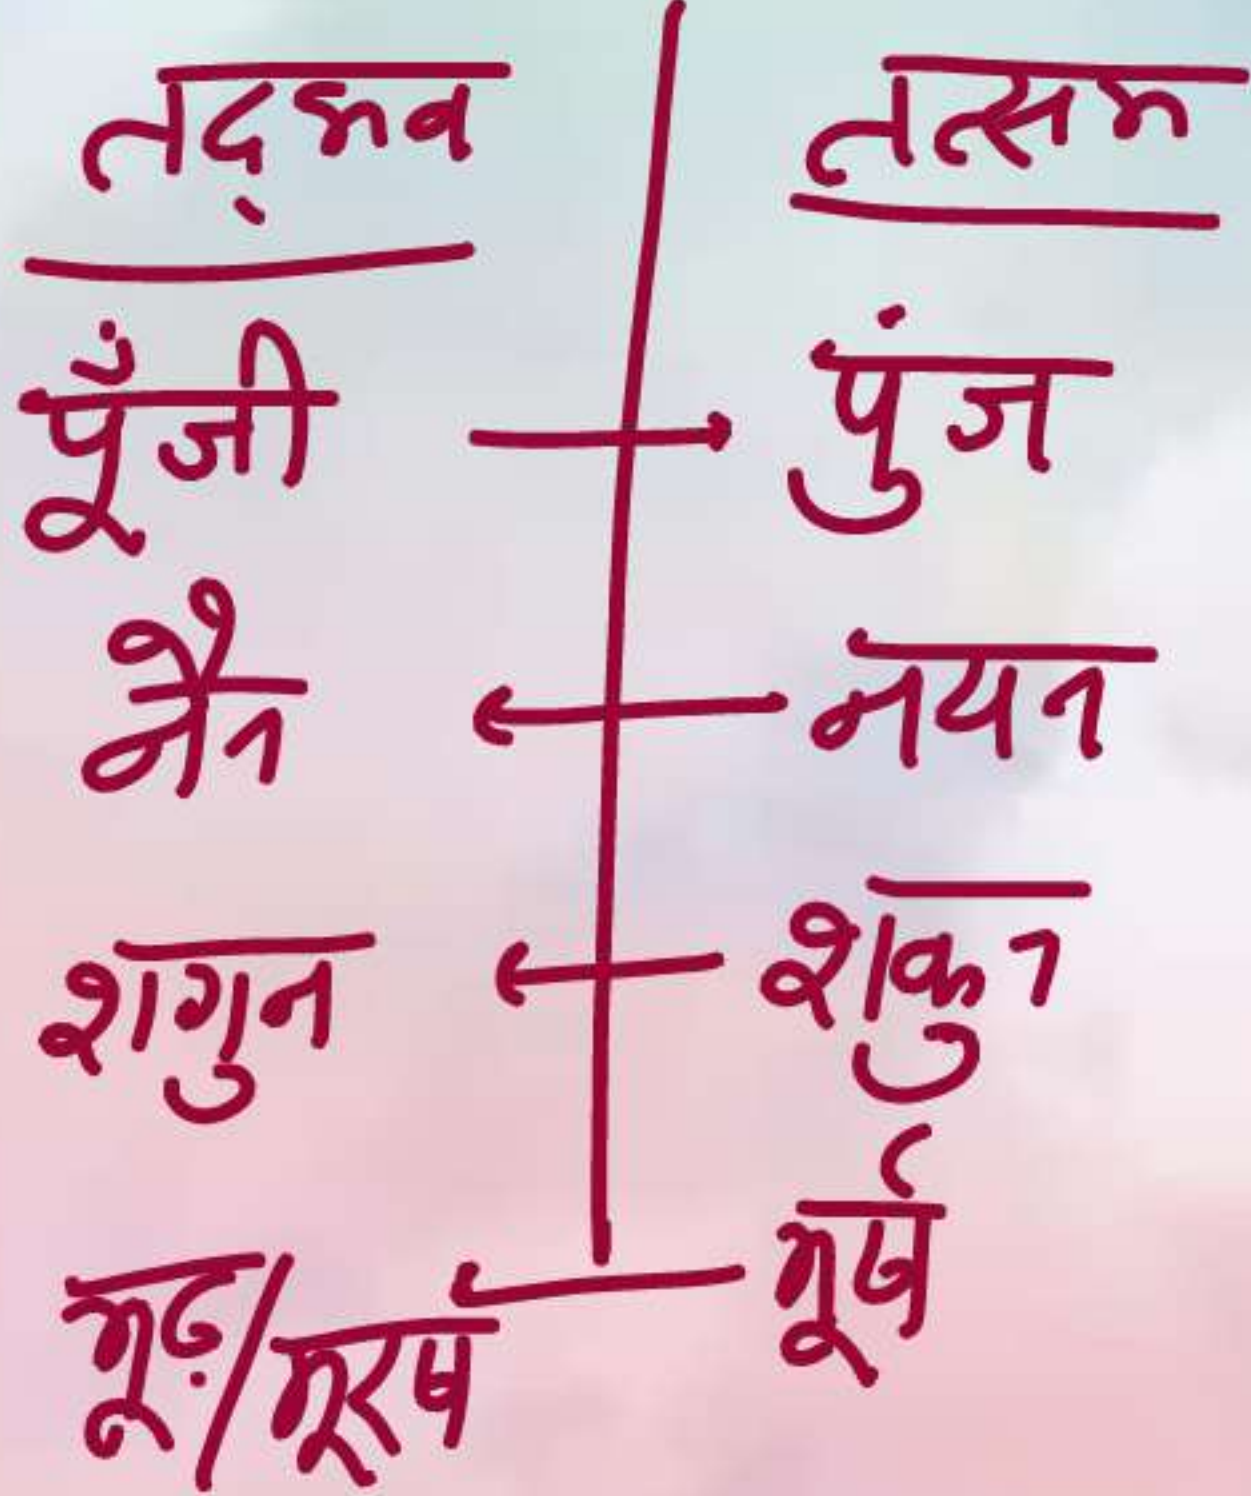 तद्भव तत्सम
पूँजी पुंज
नैन नयन
शगुन शकुन
मूढ़/मूरख मूर्ख